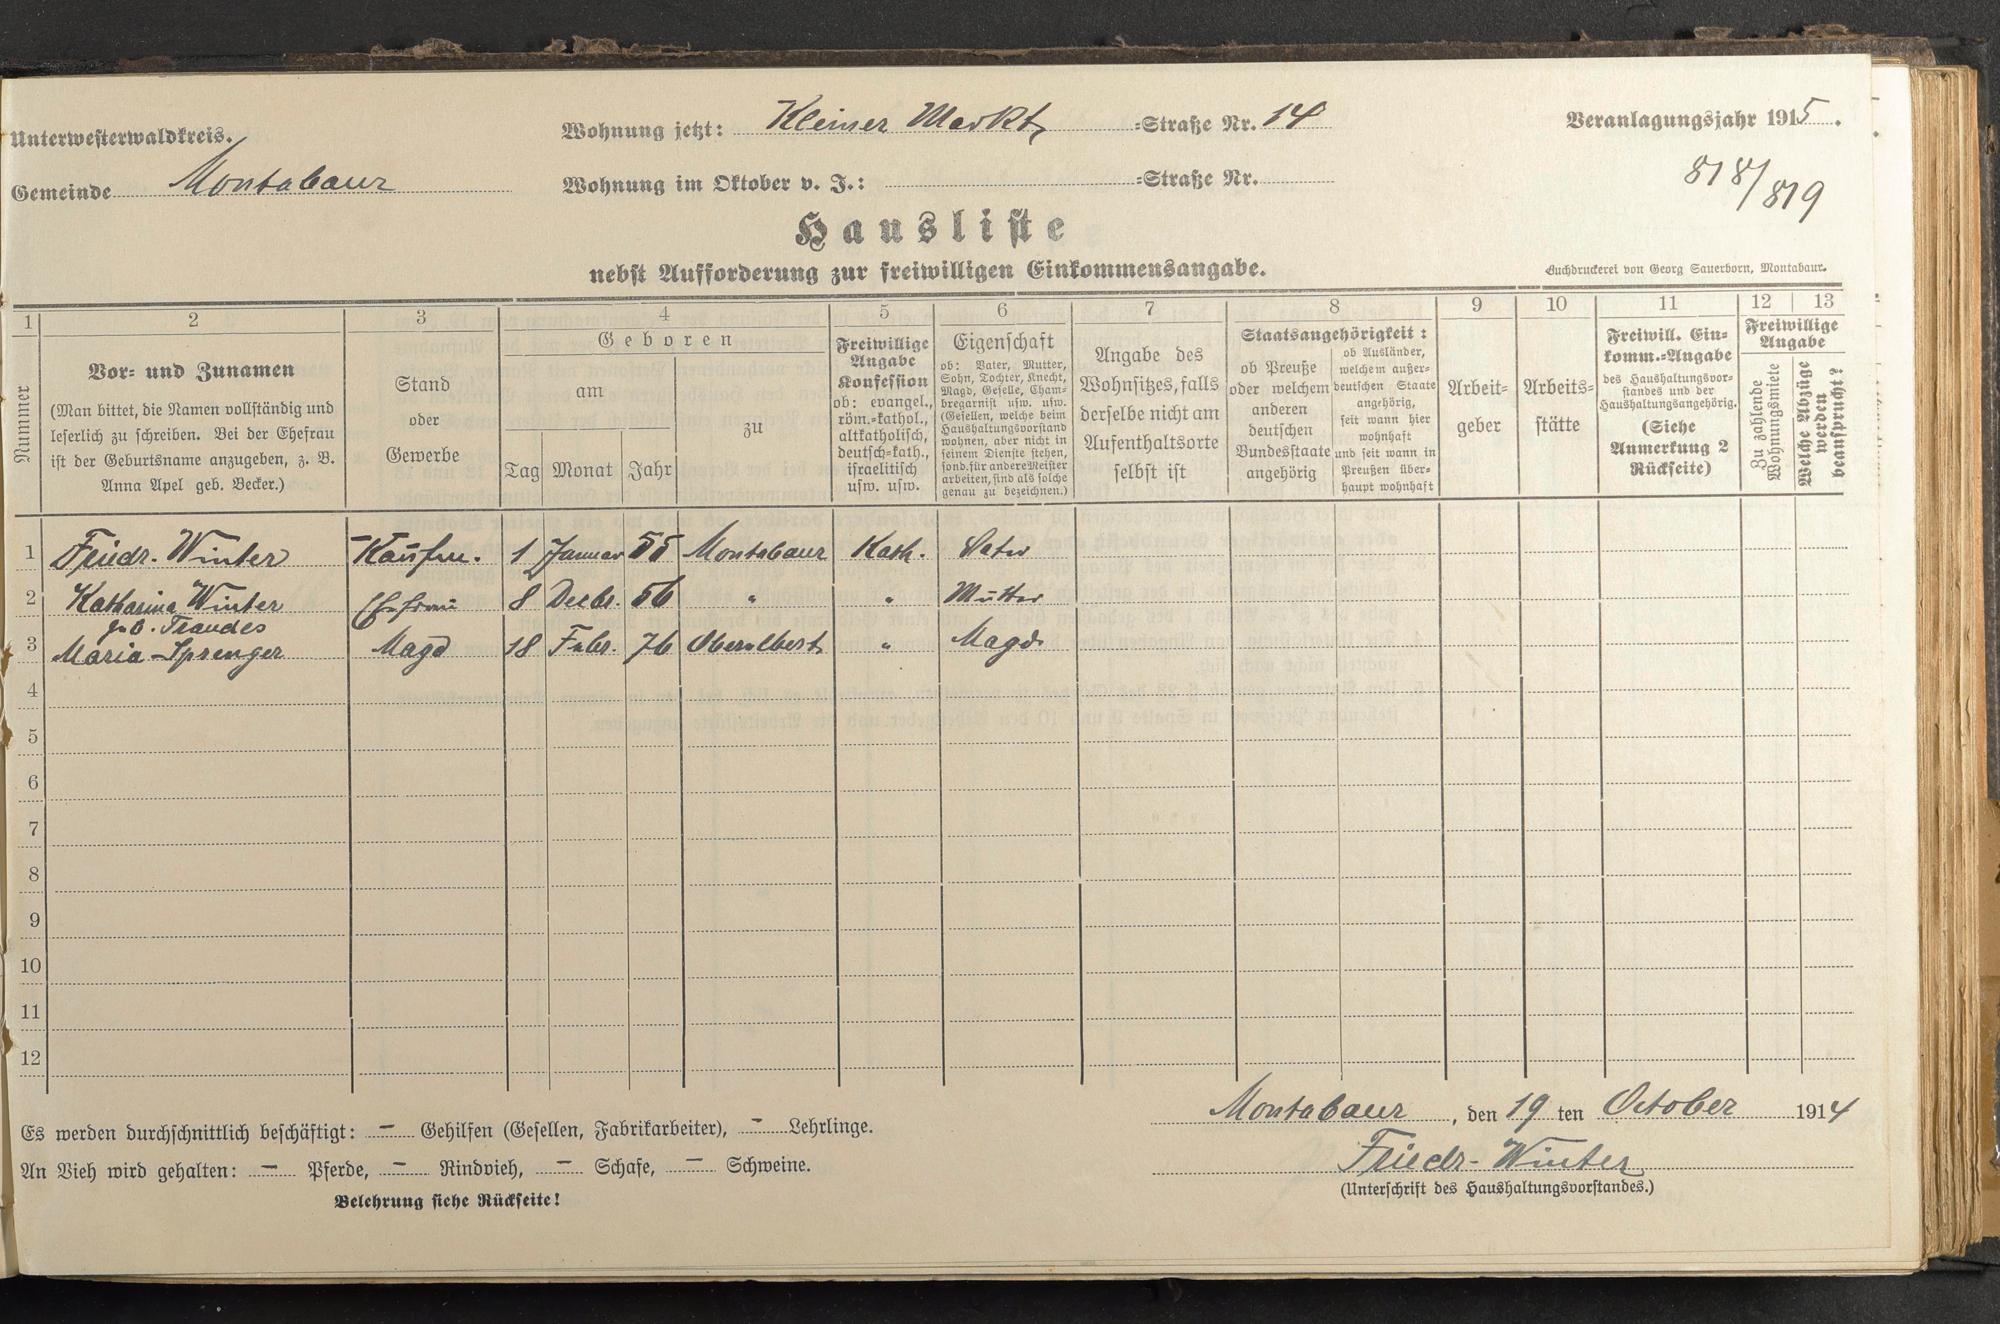 Unterwesterwaldkreis.
Gemeinde Montabaur
Wohnung jetzt: Kleiner Markt =Straße Nr. 14
Wohnung im Oktober v. J.: =Straße Nr.
Veranlagungsjahr 1915.
818/819
Hausliste
nebst Aufforderung zur freiwilligen Einkommensangabe.
Buchdruckerei von Georg Sauerborn, Montabaur.
1 2 3 4 5 6 7 8 9 10 11 12 13
Nummer
Vor- und Zunamen
(Man bittet, die Namen vollständig und
leserlich zu schreiben. Bei der Ehefrau
ist der Geburtsname anzugeben, z. B.
Anna Apel geb. Becker.)
Stand
oder
Gewerbe
Geboren
am
Tag Monat Jahr
zu
Freiwillige
Angabe
Konfession
ob: evangel.,
röm.-kathol.,
altkatholisch,
deutsch-kath.,
israelitisch
usw. usw.
Eigenschaft
ob: Vater, Mutter,
Sohn, Tochter, Knecht,
Magd, Geselle, Cham-
bregarnist usw. usw.
(Gesellen, welche beim
Haushaltungsvorstand
wohnen, aber nicht in
seinem Dienste stehen,
sond. für andere Meister
arbeiten, sind als solche
genau zu bezeichnen.)
Angabe des
Wohnsitzes, falls
derselbe nicht am
Aufenthaltsorte
selbst ist
Staatsangehörigkeit:
ob Preuße
oder welchem
anderen
deutschen
Bundesstaate
angehörig
ob Ausländer,
welchem außer-
deutschen Staate
angehörig,
seit wann hier
wohnhaft
und seit wann in
Preußen über-
haupt wohnhaft
Arbeit-
geber
Arbeits-
stätte
Freiwill. Ein-
komm.-Angabe
des Haushaltungsvor-
standes und der
Haushaltungsangehörig.
(Siehe
Anmerkung 2
Rückseite)
Freiwillige
Angabe
Zu zahlende
Wohnungsmiete
Welche Abzüge
werden
beansprucht?
1 Friedr. Winter Kaufm. 1 Januar 55 Montabaur Kath. Vater
2 Katharina Winter Ehefrau 8 Dezbr. 56 " " Mutter
geb. Fraudes
3 Maria Sprenger Magd 18 Febr. 76 Oberelbert " Magd
4
5
6
7
8
9
10
11
12
Es werden durchschnittlich beschäftigt: – Gehilfen (Gesellen, Fabrikarbeiter), – Lehrlinge.
An Vieh wird gehalten: – Pferde, – Rindvieh, – Schafe, – Schweine.
Belehrung siehe Rückseite!
Montabaur, den 19 ten October 1914
Friedr. Winter
(Unterschrift des Haushaltungsvorstandes.)